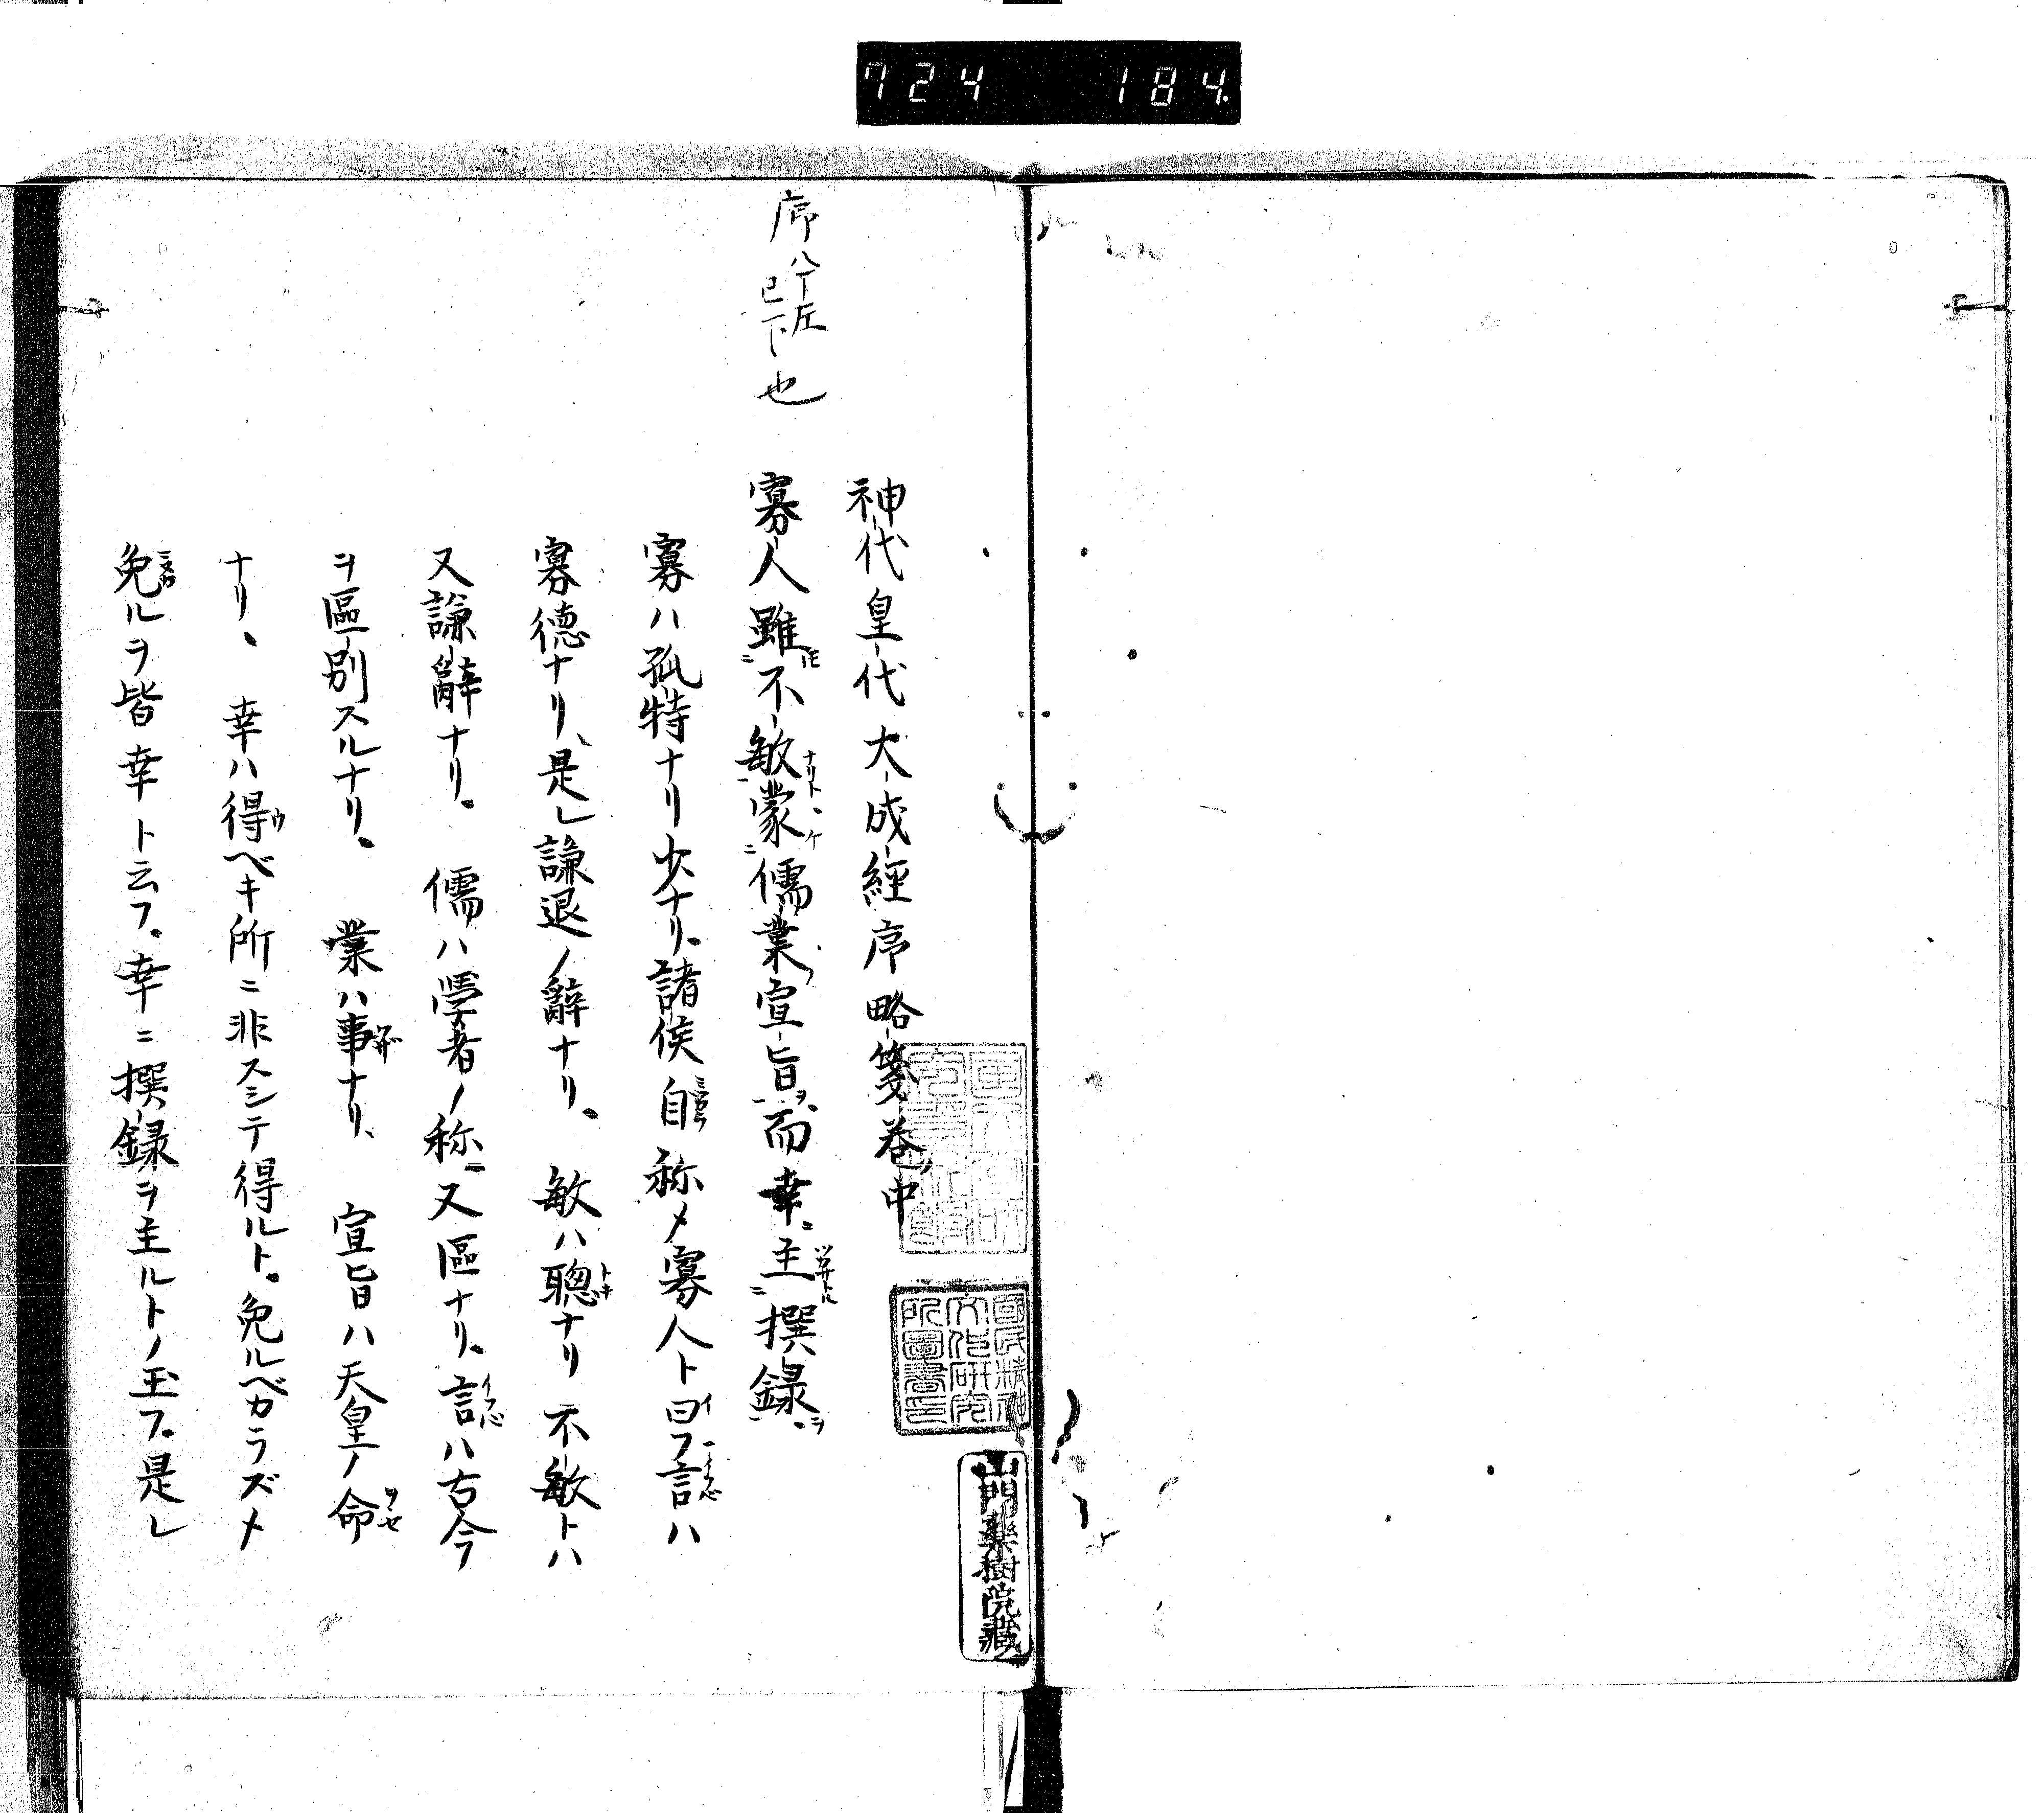 724 184.
神代皇代大成經序略箋卷中
序八丁左已下也
寡人雖不敏蒙儒業宣旨而幸主撰録
寡ハ孤特ナリ少ナリ諸侯自称メ寡人ト曰フ言ハ
寡德ナリ是レ謙退ノ辭ナリ。敏ハ聰ナリ不敏トハ
又謙辭ナリ。儒ハ學者ノ称又區ナリ。言ハ古今
ヲ區別スルナリ。業ハ事ナリ、宣旨ハ天皇ノ命
ナリ。幸ハ得ベキ所ニ非スシテ得ルト。免ルベカラズメ
免ルヲ皆幸ト云フ。幸ニ撰録ヲ主ルトノ玉フ。是レ
國民精神文化研究所圖書印
山門藥樹院藏